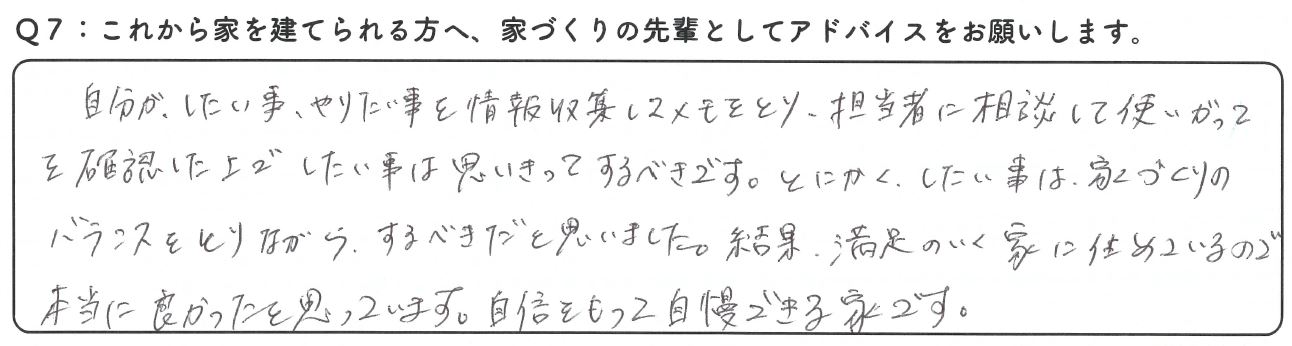 Q7：これから家を建てられる方へ、家づくりの先輩としてアドバイスをお願いします。
自分が、したい事、やりたい事を情報収集してメモをとり、担当者に相談して使いがって
を確認した上で したい事は思いきってするべきです。とにかく、したい事は、家づくりの
バランスをとりながら、するべきだと思いました。結果、満足のいく家に住めているので
本当に良かったと思っています。自信をもって自慢できる家です。